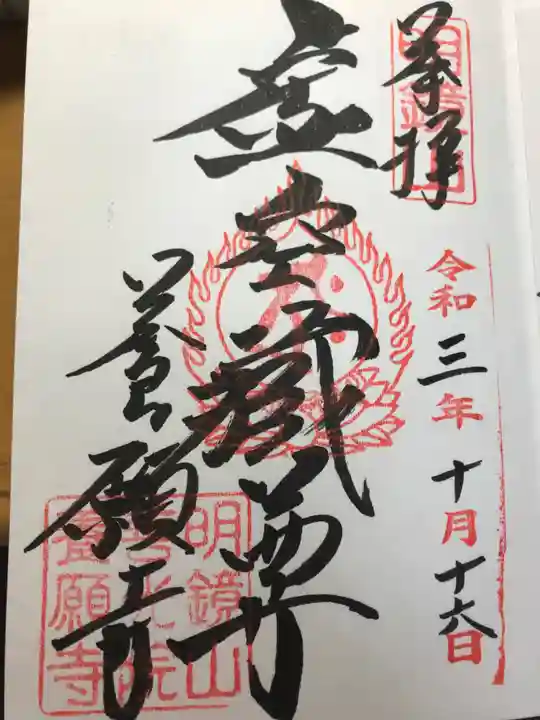 奉拝
明鏡山
令和三年十月十六日
虚空蔵尊
養願寺
明鏡山
善光院
養願寺